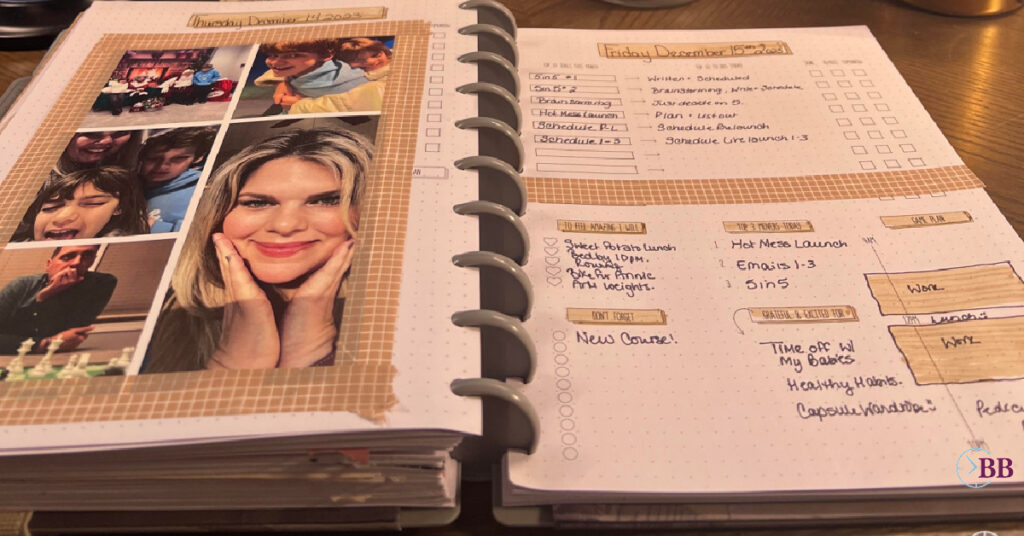 Thursday December 14 2023
Friday December 15th 2023
5 in 5 #1 → Written + Scheduled
5 in 5 #2 → Brainstorming, Write + Schedule
Brainstorming → Just decide on 5.
Hot Mess Launch → Plan + List out
Schedule P.L → Schedule Prelaunch
Schedule 1-3 → Schedule Live launch 1-3
TO FEEL AMAZING I WILL
Sweet Potato Lunch
Bed by 10pm.
Bike for
Arm Weights.
TOP 3 MOVERS TODAY
1. Hot Mess Launch
2. Emails 1-3
3. 5 in 5
GAME PLAN
Work
Lunch
Work
DON'T FORGET
New Course!
GRATEFUL & EXCITED FOR
Time off w/
My Babies
Healthy Habits.
Capsule Wardrobe
BB